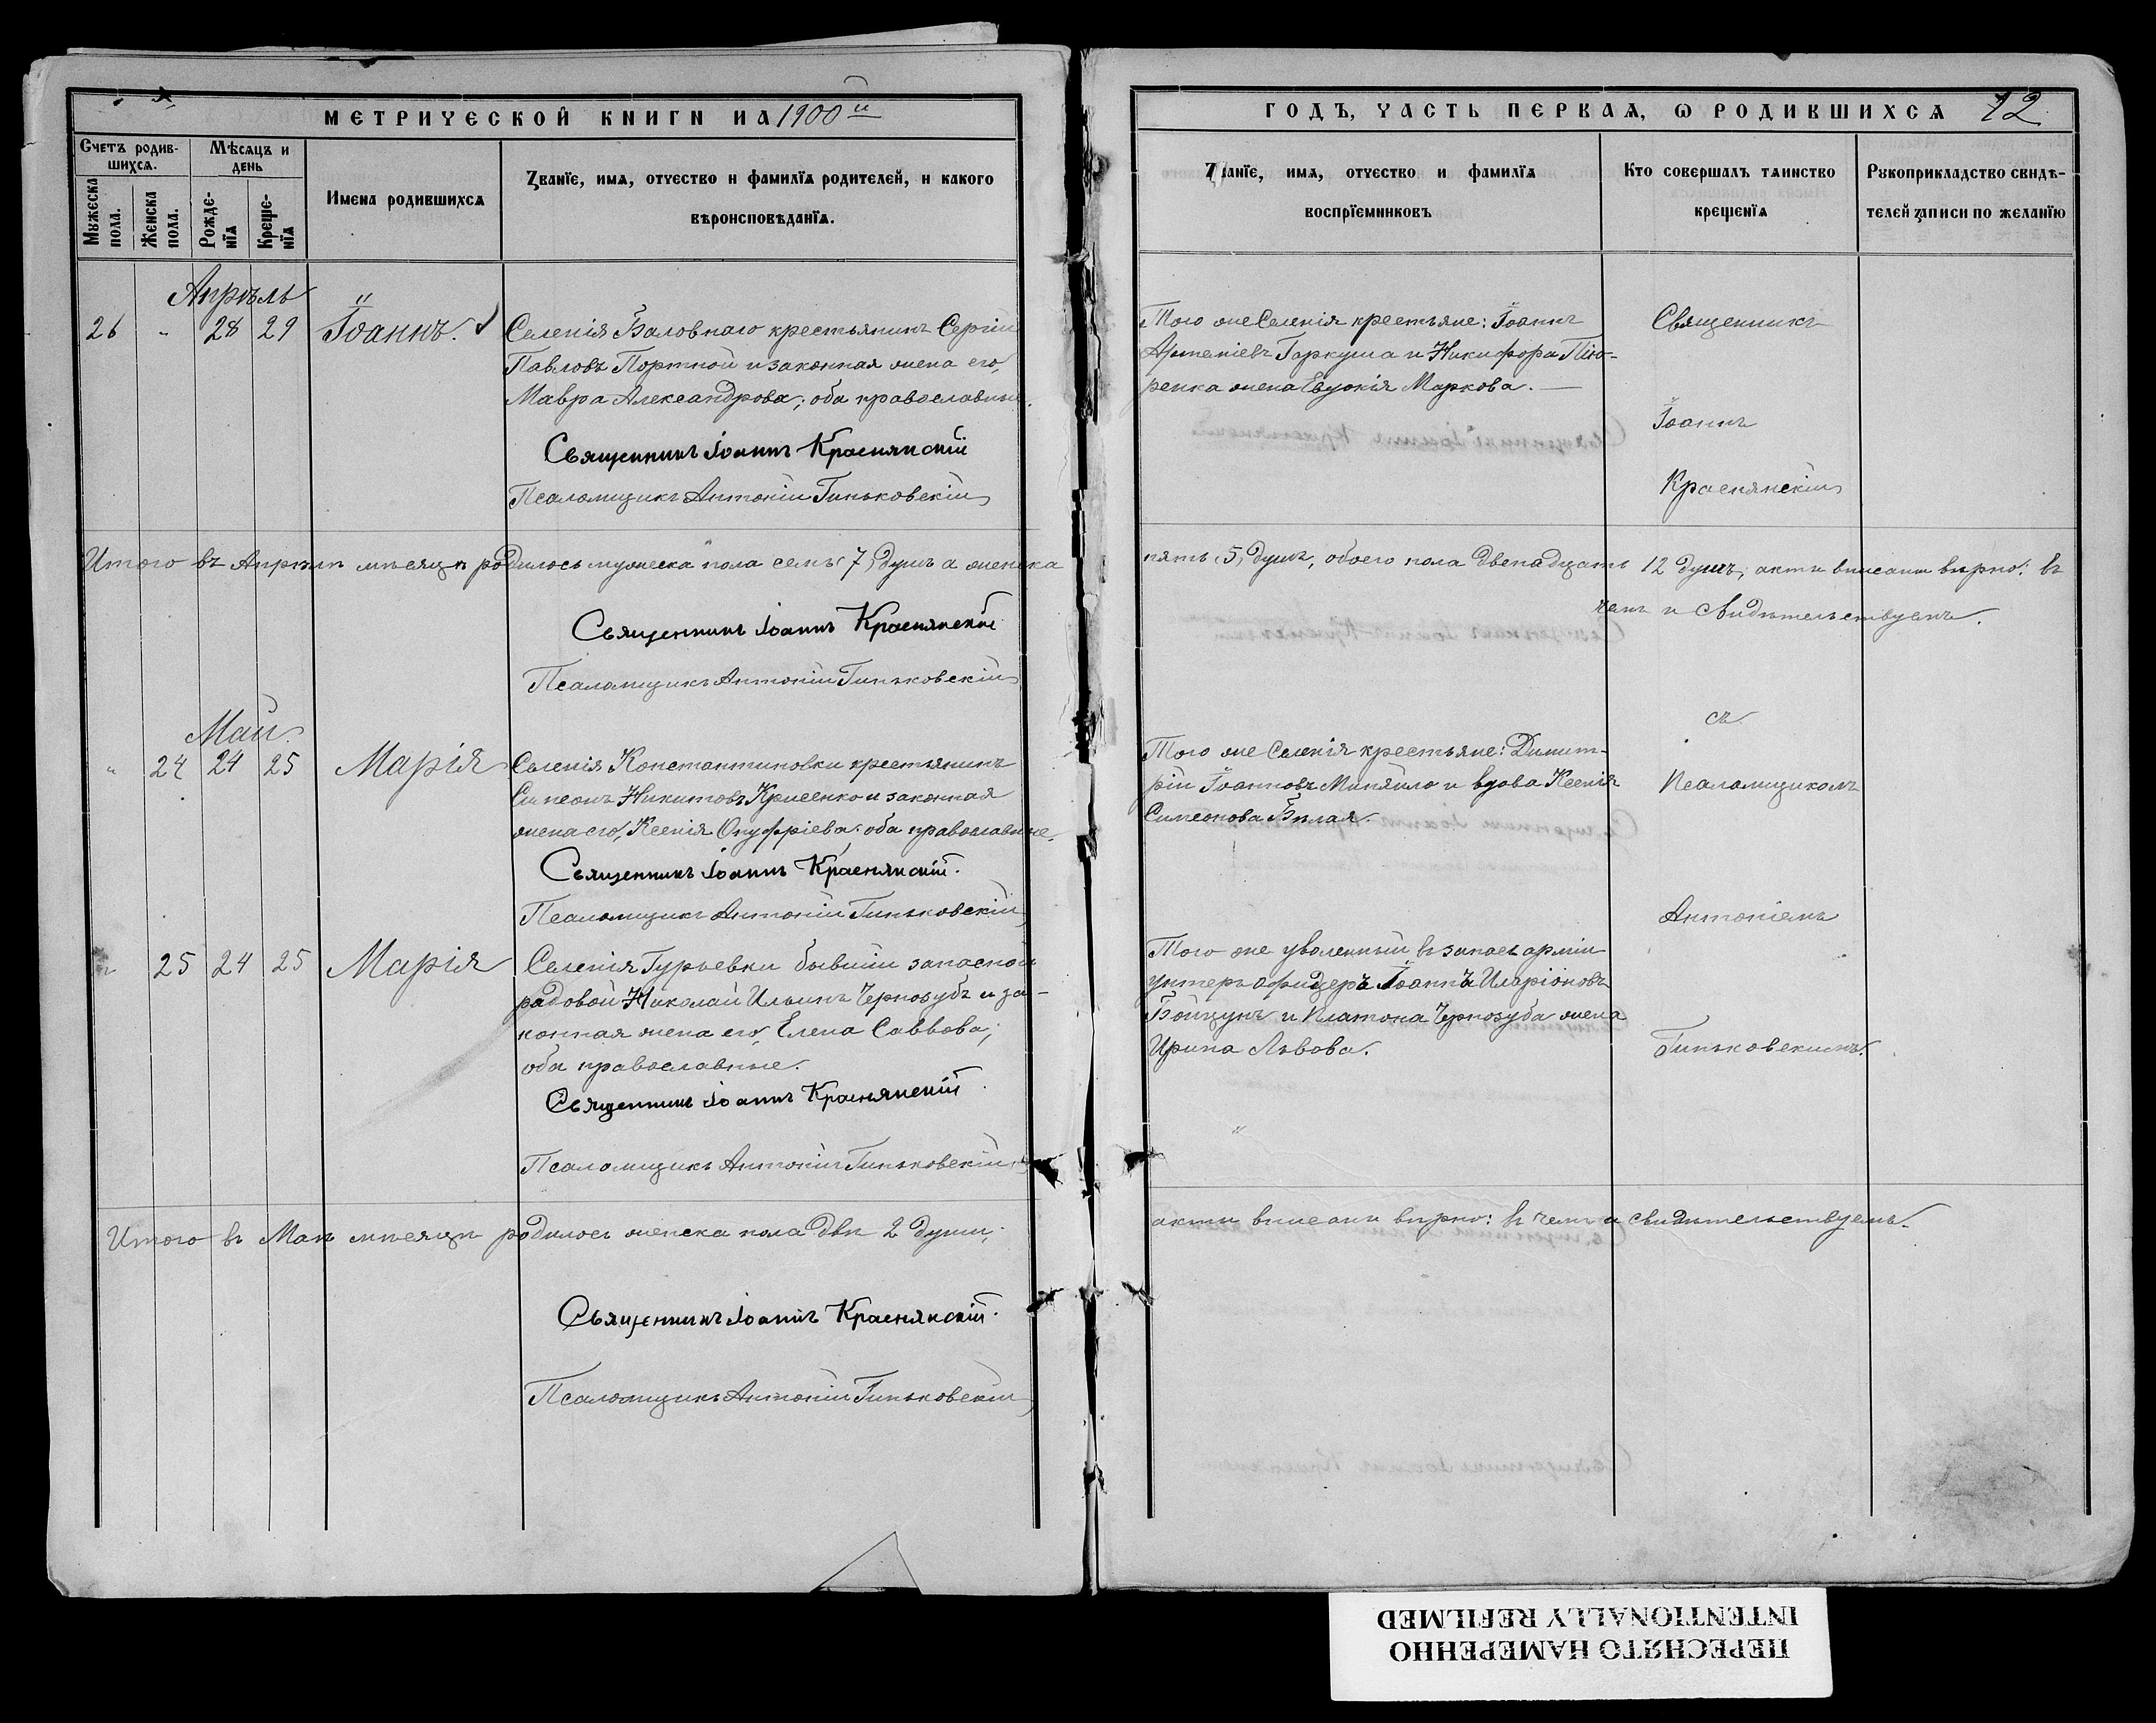 МЕТРИЧЕСКОЙ КНИГИ НА 1900й
Счетъ родив-
шихся.
Мѣсяцъ и
день
Мужеска
пола.
Женска
пола.
Рожде-
нїя
Креще-
нїя
Имена родившихся
Званїе, имя, отчество и фамилїя родителей, и какого
вѣроисповѣданїя.
Апрѣль
26 " 28 29 Іоаннъ.
Селенія Баловнаго крестьянинъ Сергій
Павловъ Портной и законная жена его,
Мавра Александрова; оба православные.
Священникъ Іоаннъ Краснянскій
Псаломщикъ Антоній Гиньковскій
Итого въ Апрѣлѣ мѣсяцѣ родилось мужеска пола семь 7, душъ а женска
Священникъ Іоаннъ Краснянскій
Псаломщикъ Антоній Гиньковскій
Май.
" 24 24 25 Марія
Селенія Константиновки крестьянинъ
Симеонъ Никитовъ Крисенко и законная
жена его, Ксенія Онуфріева; оба православные.
Священникъ Іоаннъ Краснянскій.
Псаломщикъ Антоній Гиньковскій
" 25 24 25 Марія
Селенія Гурьевки бывшій запасной
рядовой Николай Ильинъ Чернозубъ и за-
конная жена его, Елена Саввова;
оба православные.
Священникъ Іоаннъ Краснянскій
Псаломщикъ Антоній Гиньковскій
Итого въ Маѣ мѣсяцѣ родилось женска пола двѣ 2 души;
Священникъ Іоаннъ Краснянскій.
Псаломщикъ Антоній Гиньковскій
ГОДЪ, ЧАСТЬ ПЕРВАЯ, Ѡ РОДИВШИХСЯ 12
Званїе, имя, отчество и фамилїя
воспрїемниковъ
Кто совершалъ таинство
крещенїя
Рукоприкладство свидѣ-
телей записи по желанїю
Того же Селенія крестьяне: Іоаннъ
Артеміевъ Гаркуша и Никифора Пію-
ренка жена Евдокія Маркова.
Священникъ
Іоаннъ
Краснянскій
пять, 5, душъ, обоего пола двенадцать 12 душъ, акты вписаны вѣрно: въ
чемъ и свидѣтельствуемъ.
Того же Селенія крестьяне: Димит-
рій Іоанновъ Миняйло и вдова Ксенія
Симеонова Бѣлая.
съ
Псаломщикомъ
Антоніемъ
Гиньковскимъ.
Того же уволенный въ запасъ арміи
унтеръ офицеръ Іоаннъ Иларіоновъ
Бойцунъ и Платона Чернозуба жена
Ирина Львова.
акты вписаны вѣрно: въ чемъ и свидѣтельствуемъ.
ПЕРЕСНЯТО НАМЕРЕННО
INTENTIONALLY REFILMED